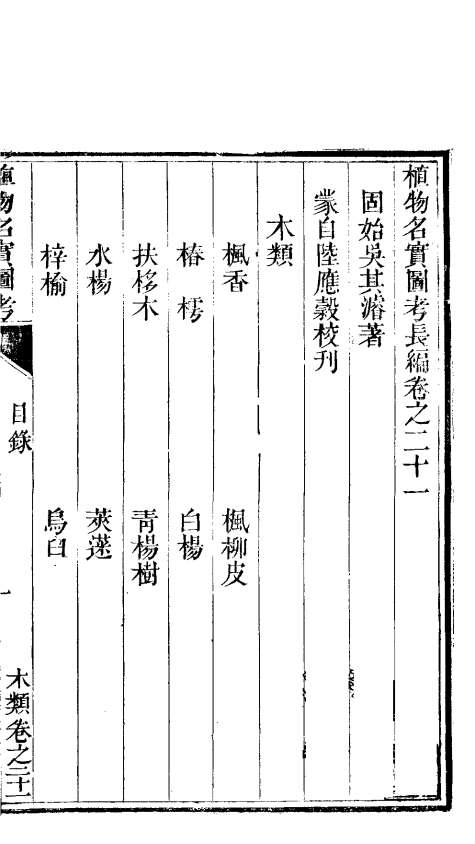 植物名實圖考長編卷之二十一
固始吳其濬著
蒙自陸應穀校刊
木類
楓香　楓柳皮
椿樗　白楊
扶栘木　青楊樹
水楊　莢蒾
梓榆　烏臼
植物名實圖考　目錄　一　木類卷之二十一